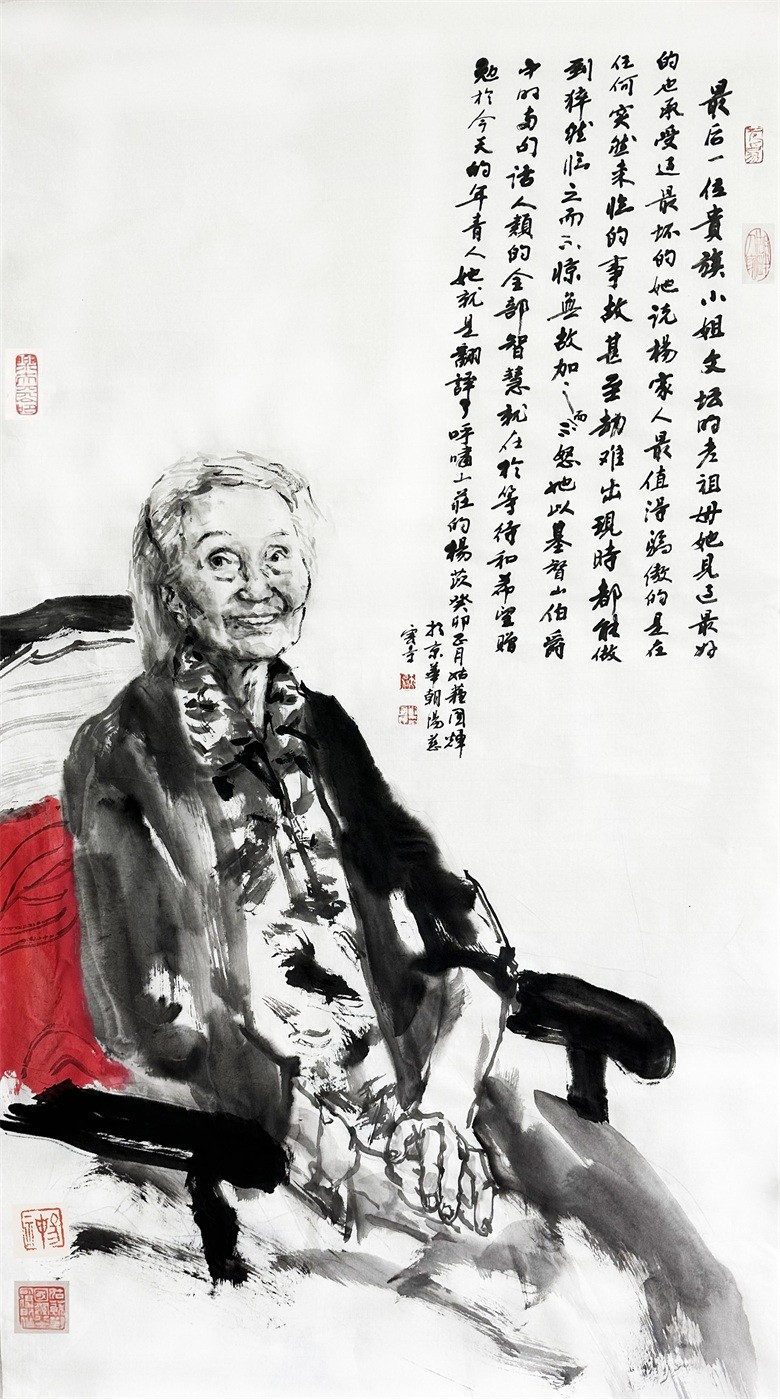 最后一位貴族小姐文坛的老祖母她見过最好
的也承受过最坏的她说楊家人最值得驕傲的是在
任何突然来临的事故甚至劫难出現時都能做
到猝然临之而不惊無故加之而不怒她以基督山伯爵
中的两句话人類的全部智慧就在於等待和希望赠
勉於今天的年青人她就是翻譯了呼嘯山莊的楊苡癸卯正月姑蘇国輝
於京華朝陽慈
雲寺